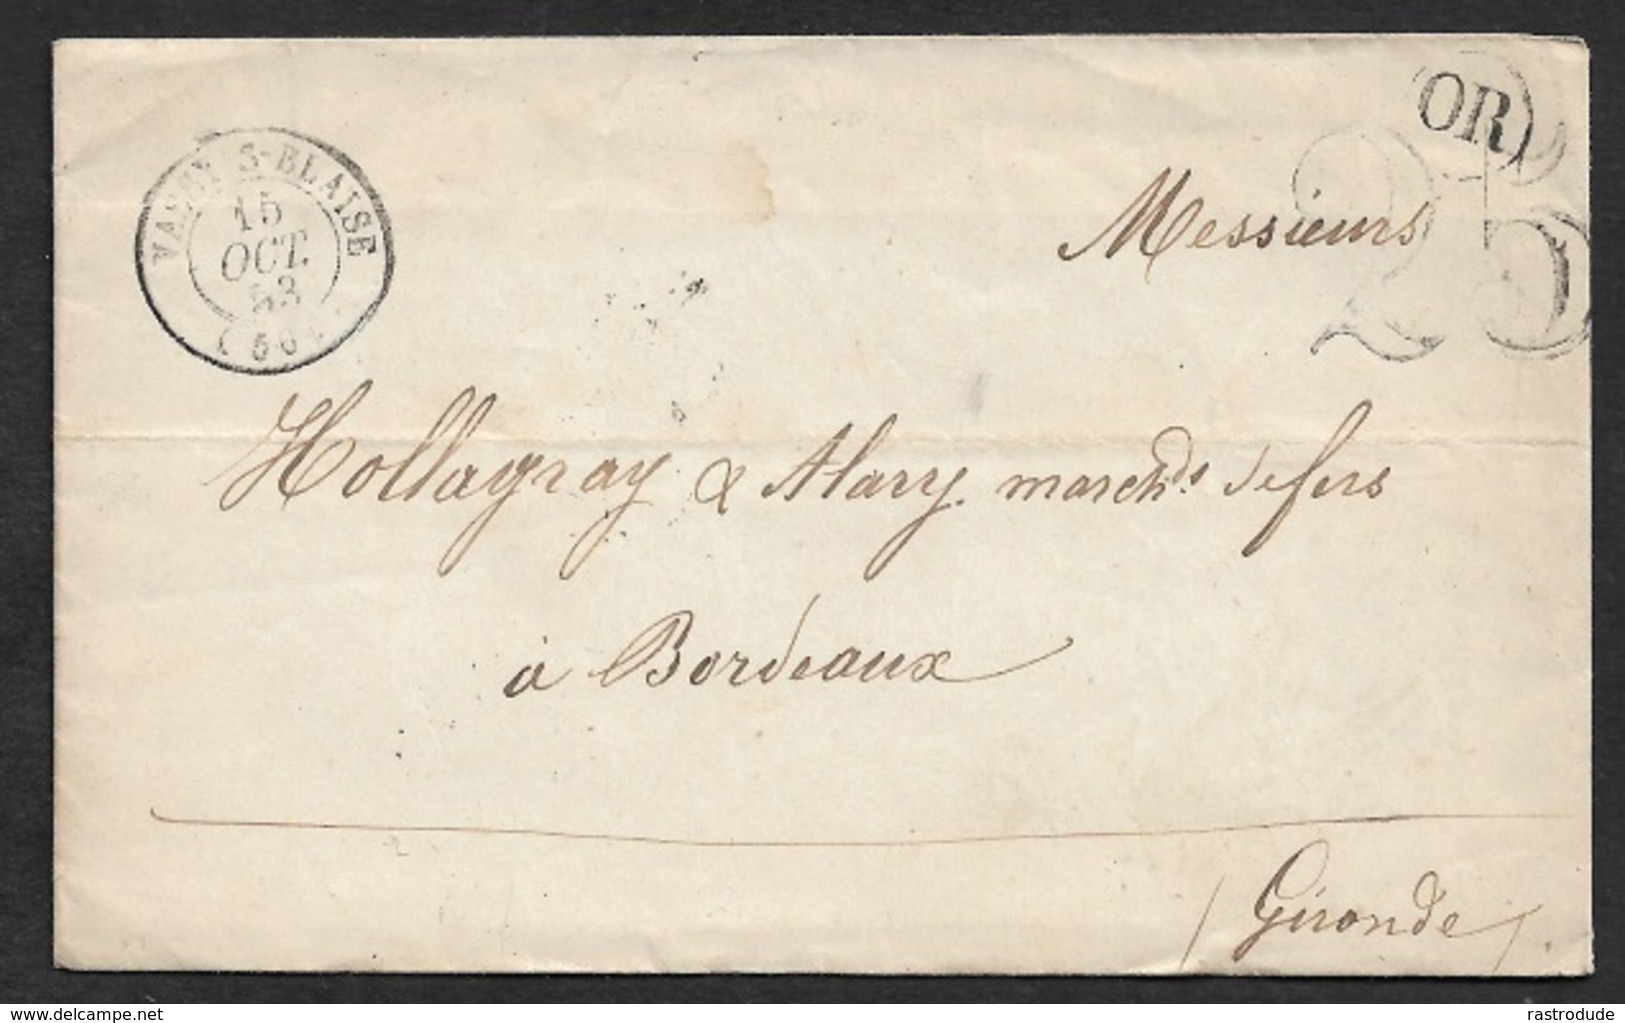 VASSY S-BLAISE
15
OCT.
53
OR
25
Messieurs
Hollagray & Alary march.ds de fers
à Bordeaux
(Gironde).
www.delcampe.net
rastrodude